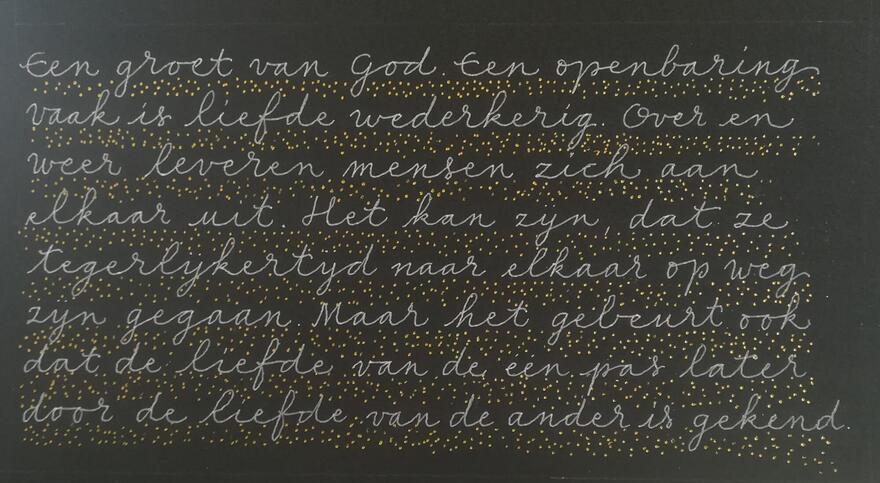 Een groet van God. Een openbaring
vaak is liefde wederkerig. Over en
weer leveren mensen zich aan
elkaar uit. Het kan zijn, dat ze
tegerlijkertijd naar elkaar op weg
zijn gegaan. Maar het gebeurt ook
dat de liefde van de een pas later
door de liefde van de ander is gekend.